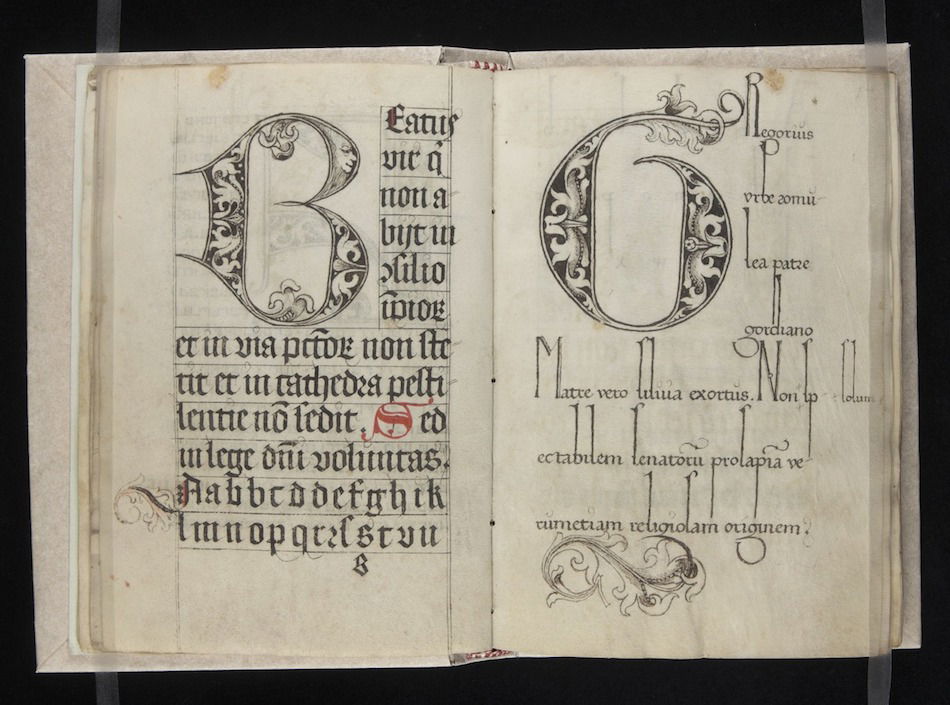 Beatus
vir q̄
non a
bijt in
ↄſilio
īpioꝝ
et in via pctōꝝ non ſte
tit et in cathedra peſti
lentie nō ſedit. Sed
in lege dn̄i voluntas.
Aabbcddefghik
lmnopqrꝛſstvu
s
GRegorius
vrbe romū
lea patre
gordiano
Matre vero ſiluia exortus. Non ſolum ſp
ectabilem ſenatorū proſapia ve
rumetiam religioſam originem.